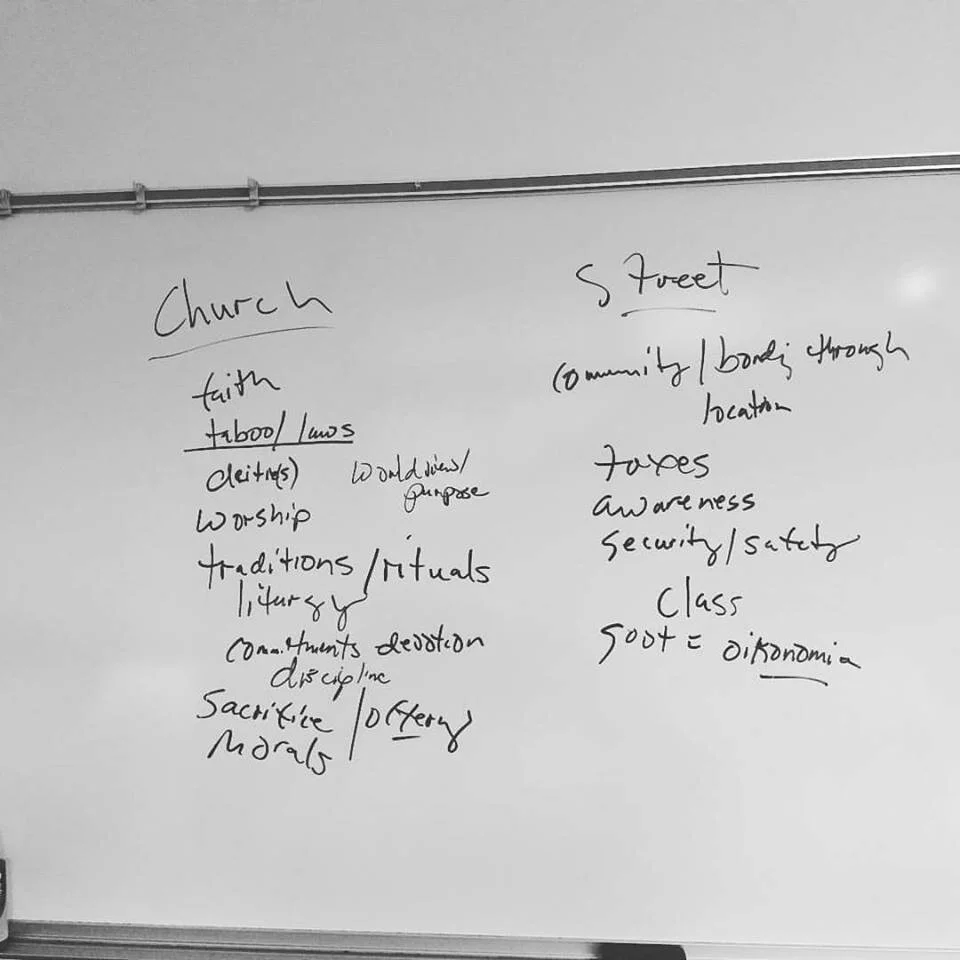 Church
faith
taboo/laws
deitie(s)
worldview/
purpose
worship
traditions/rituals
liturgy
commitments devotion
discipline
Sacrifice/offering
Morals
Street
community/bonding through
location
taxes
awareness
security/safety
class
govt = oikonomia